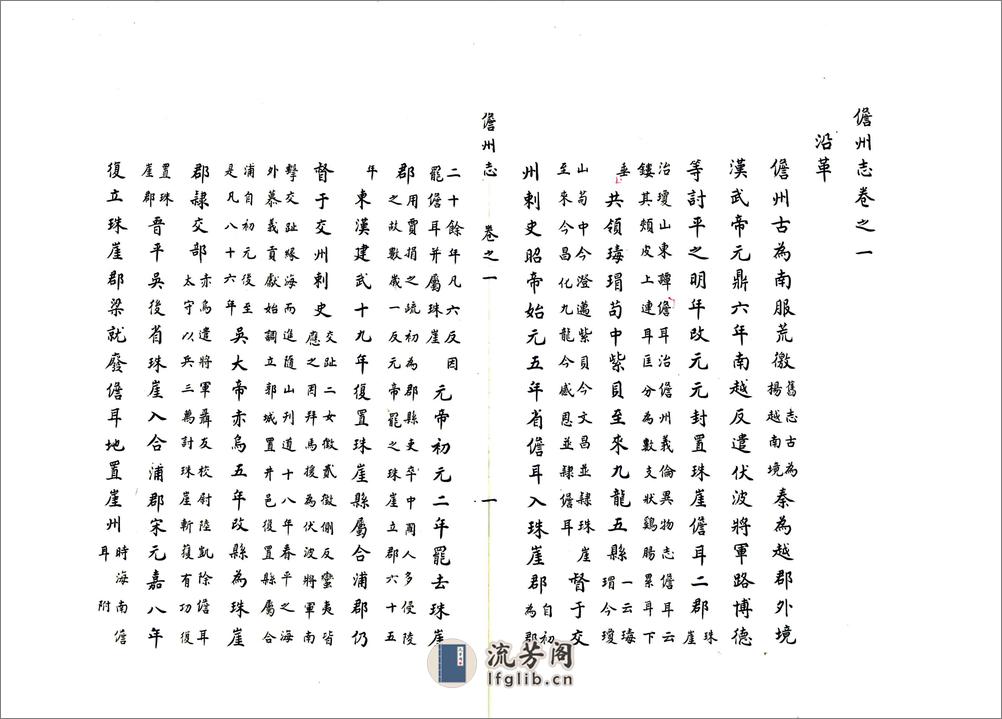 儋州志卷之一
沿革
儋州古為南服荒徼舊志古為揚越南境秦為越郡外境
漢武帝元鼎六年南越反遣伏波將軍路博德
等討平之明年改元元封置珠崖儋耳二郡珠崖
治瓊山東韓儋耳治儋州義倫異物志儋耳云
鏤其頰皮上連耳匡分為數支狀鷄腸累耳下
垂共領瑇瑁苟中紫貝至來九龍五縣一云瑇瑁今瓊
山苟中今澄邁紫貝今文昌並隸珠崖
至來今昌化九龍今感恩並隸儋耳督于交
州刺史昭帝始元五年省儋耳入珠崖郡自初為郡
儋州志
卷之一
一
二十餘年凡六反因
罷儋耳并屬珠崖元帝初元二年罷去珠崖
郡用賈捐之疏初為郡縣吏卒中國人多侵陵
之故數歲一反元帝罷之珠崖立郡六十五
年東漢建武十九年復置珠崖縣屬合浦郡仍
督于交州刺史交趾二女徵貳徵側反蠻夷皆
應之因拜馬援為伏波將軍南
擊交趾緣海而進隨山刊道十八年春平之海
外慕義貢獻始調立郭城置井邑復置縣屬合
浦自初元後至
是凡八十六年吳大帝赤烏五年改縣為珠崖
郡隸交部赤烏遣將軍聶友校尉陸凱除儋耳
太守以兵三萬討珠崖斬獲有功復
置珠
崖郡晉平吳後省珠崖入合浦郡宋元嘉八年
復立珠崖郡梁就廢儋耳地置崖州時海南儋
耳附
流芳阁
lfglib.cn